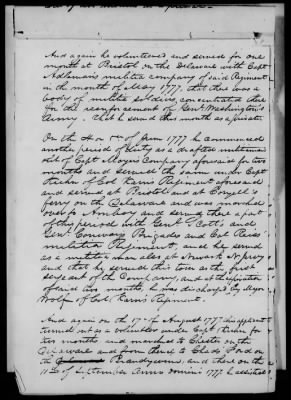 And again he volunteered and served for one
month at Bristol on the Delaware with Capt
militia company of said Regiment
in the month of May 1777, that this was a
body of militia soldiers, concentrated there
for the reenforcement of Genl Washington's
Army. That he served this month as private.
On the 4 or of June 1777 he commenced
another period of duty as a drafted militiaman
of Capt Moyer's Company aforesaid for two
months and served the same under Capt
of Col Regiment aforesaid
and served at Bristol and at Coryell's
ferry on the Delaware and was marched
over to Amboy and served there a part
of the period with Genl Scott's and
Genl Conways Brigades and Col
militia Regiment, and he served
as a militia man also at Newark N Jersey
and that he served this tour as the first
sergeant of the Company, and at the expiration
of said two months, he was discharged by Major
of Col Regiment.
And again on the 17th of August 1777 this applicant
turned out as a volunteer under Capt for
two months and marched to Chester on the
Delaware and from thence to Chads Ford on
the Brandywine, and there on the
11th of September Anno domini 1777 he assisted